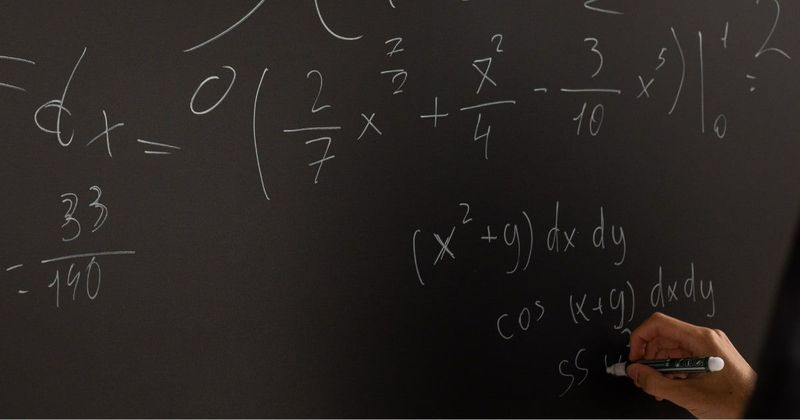 = dx = 0 ( 2/7 x^(7/2) + x^2/4 - 3/10 x^5 ) |_0^1 =
= 33/140
(x^2 + y) dx dy
cos (x+y) dx dy
SS